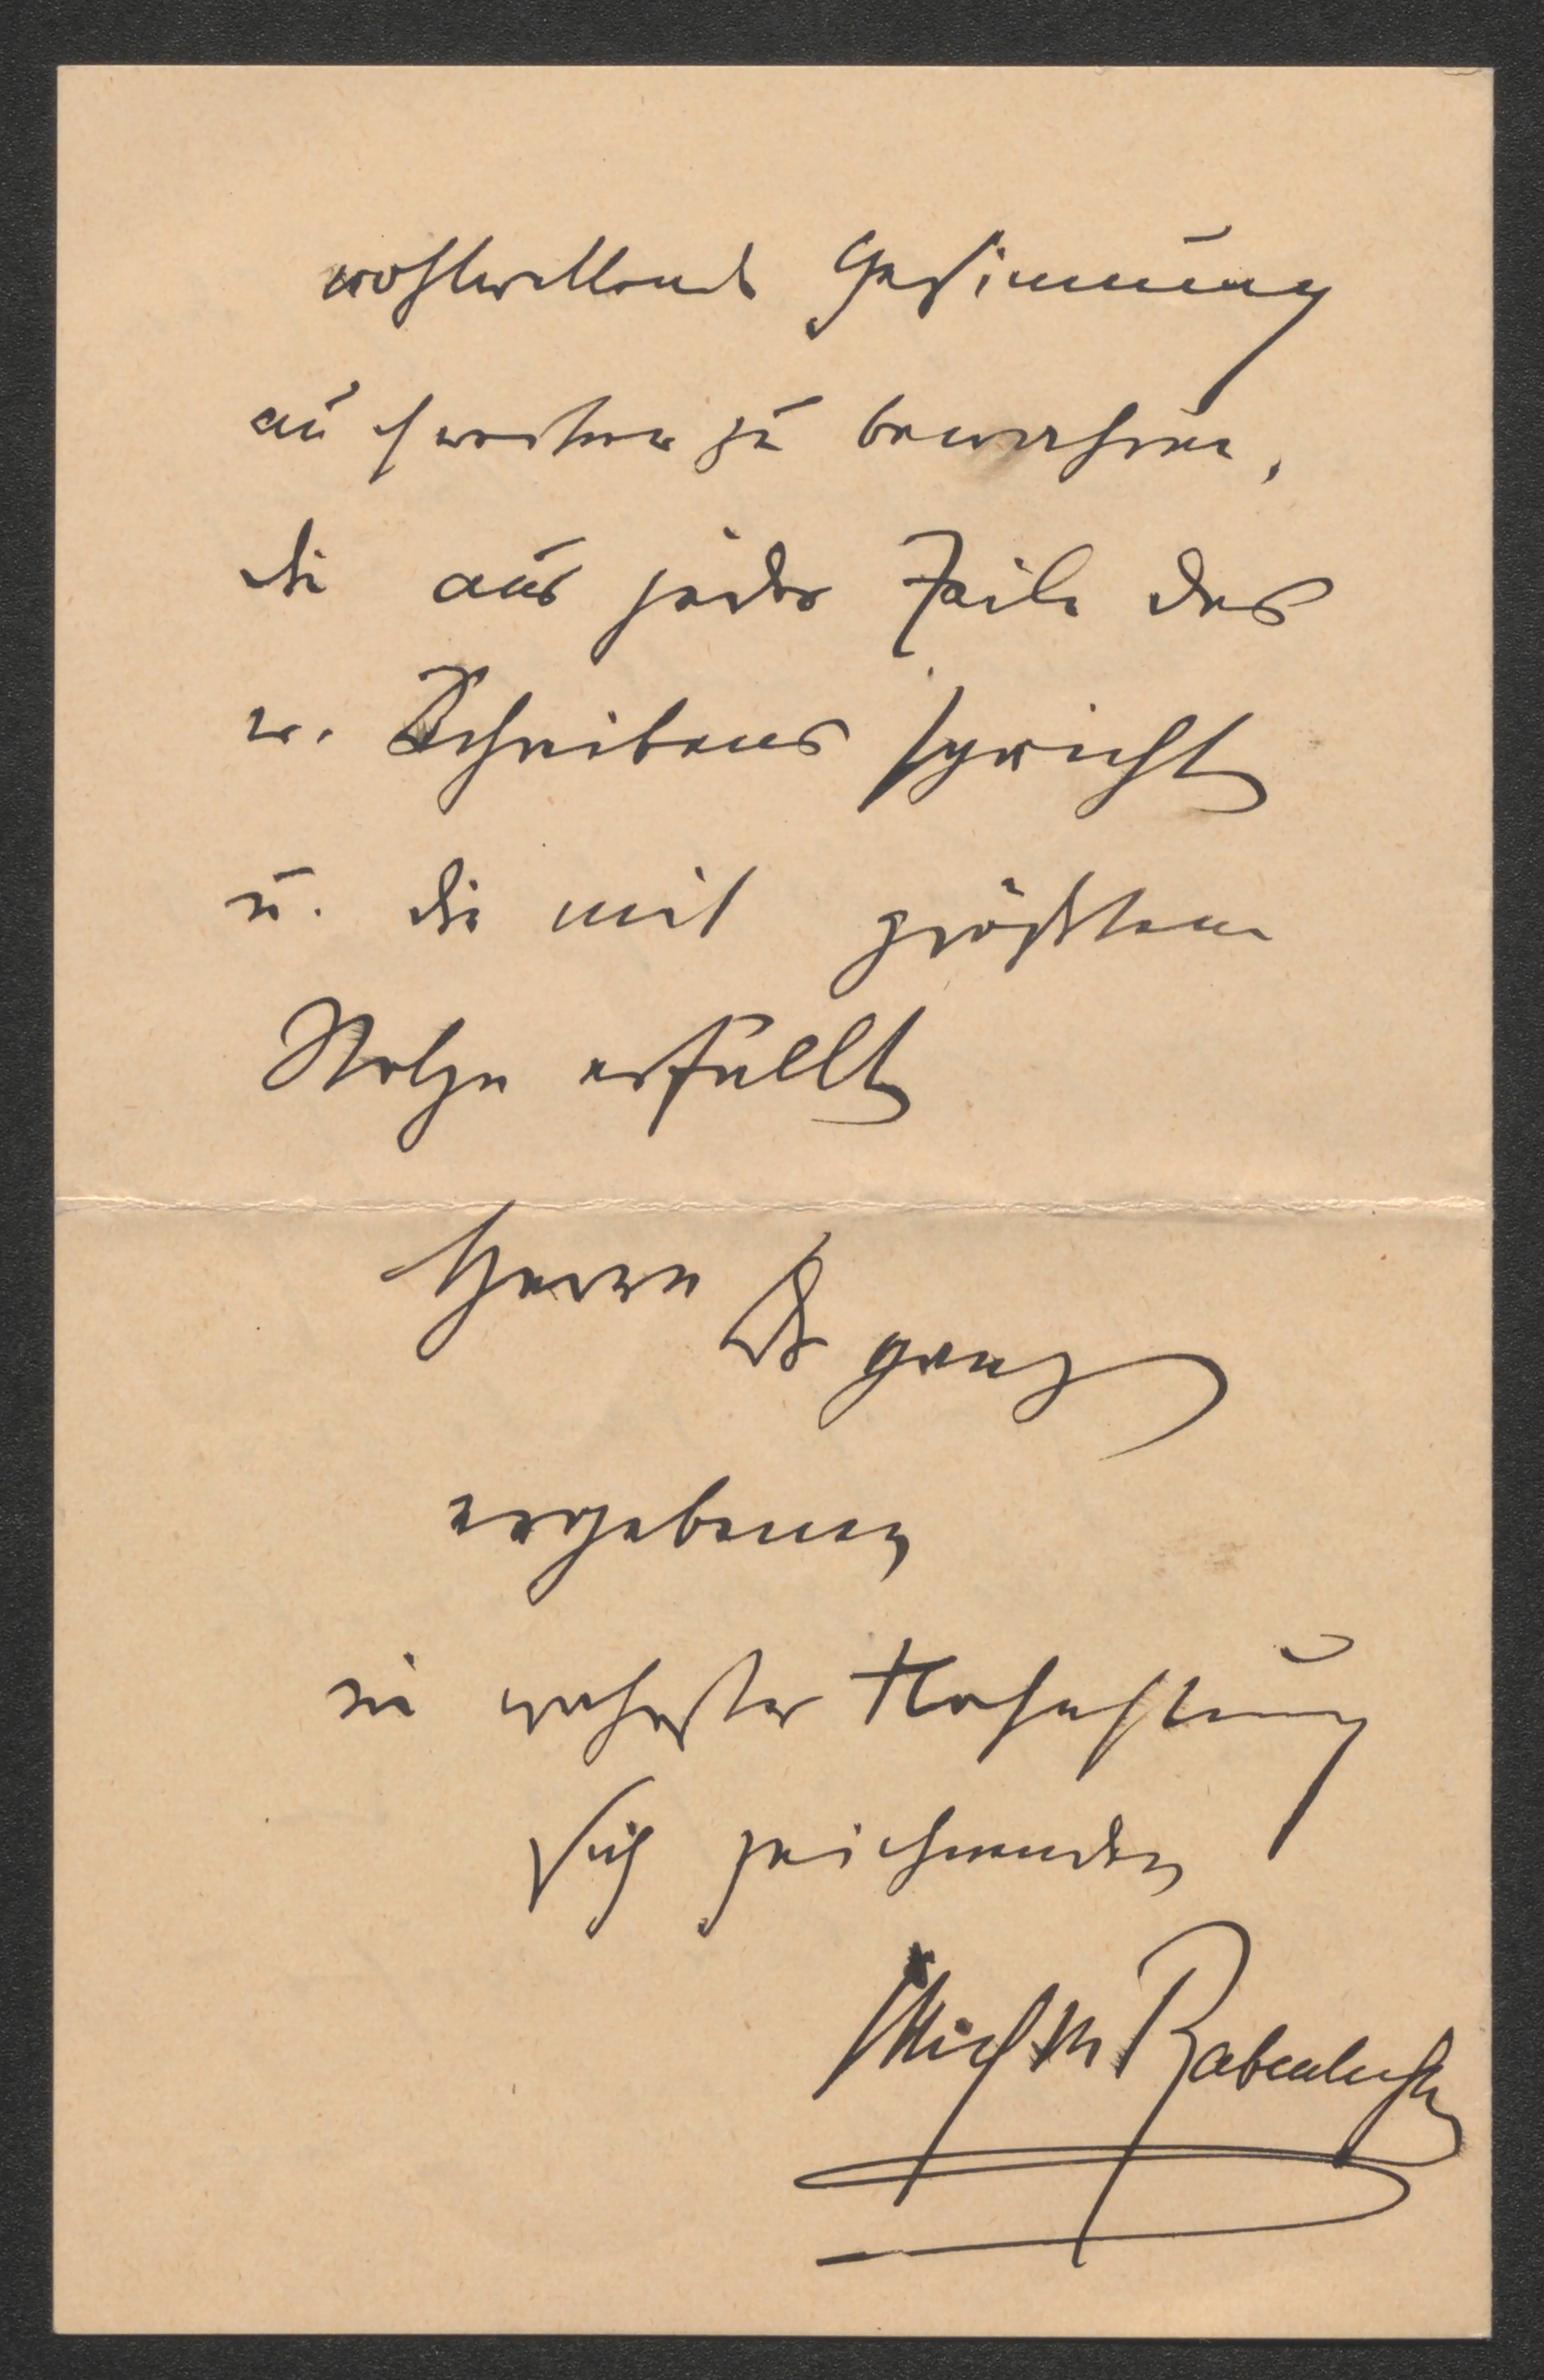 wohlwollende Gesinnung
auch weiter zu bewahren,
die aus jeder Zeile des
w. Schreibens spricht
u. die mit größtem
Stolze erfüllt
Herrn Dr ganz
ergebenen
in wahrster Hochachtung
sich zeichnenden
Mich M Rabenlechner